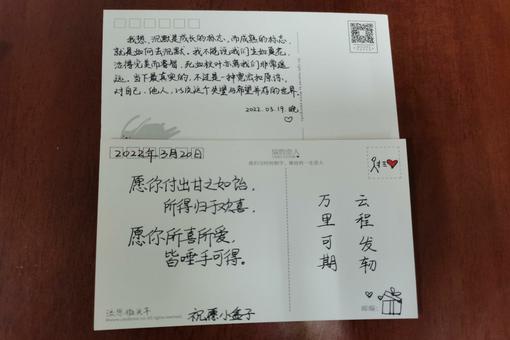 我想,沉默是成长的标志,而成熟的标志,
就是如何去沉默。我不能说我们生如夏花,
活得完美而睿智,死如秋叶亦离我们非常遥
远。当下最真实的,不过是一种宽宏和原谅。
对自己,他人,以及这个失望与希望并存的世界。
2022.03.19.晚
2022年3月20日
愿你付出甘之如饴,
所得归于欢喜。
愿你所喜所爱,
皆唾手可得。
祝愿小孟子
云程发轫
万里可期
邮编: